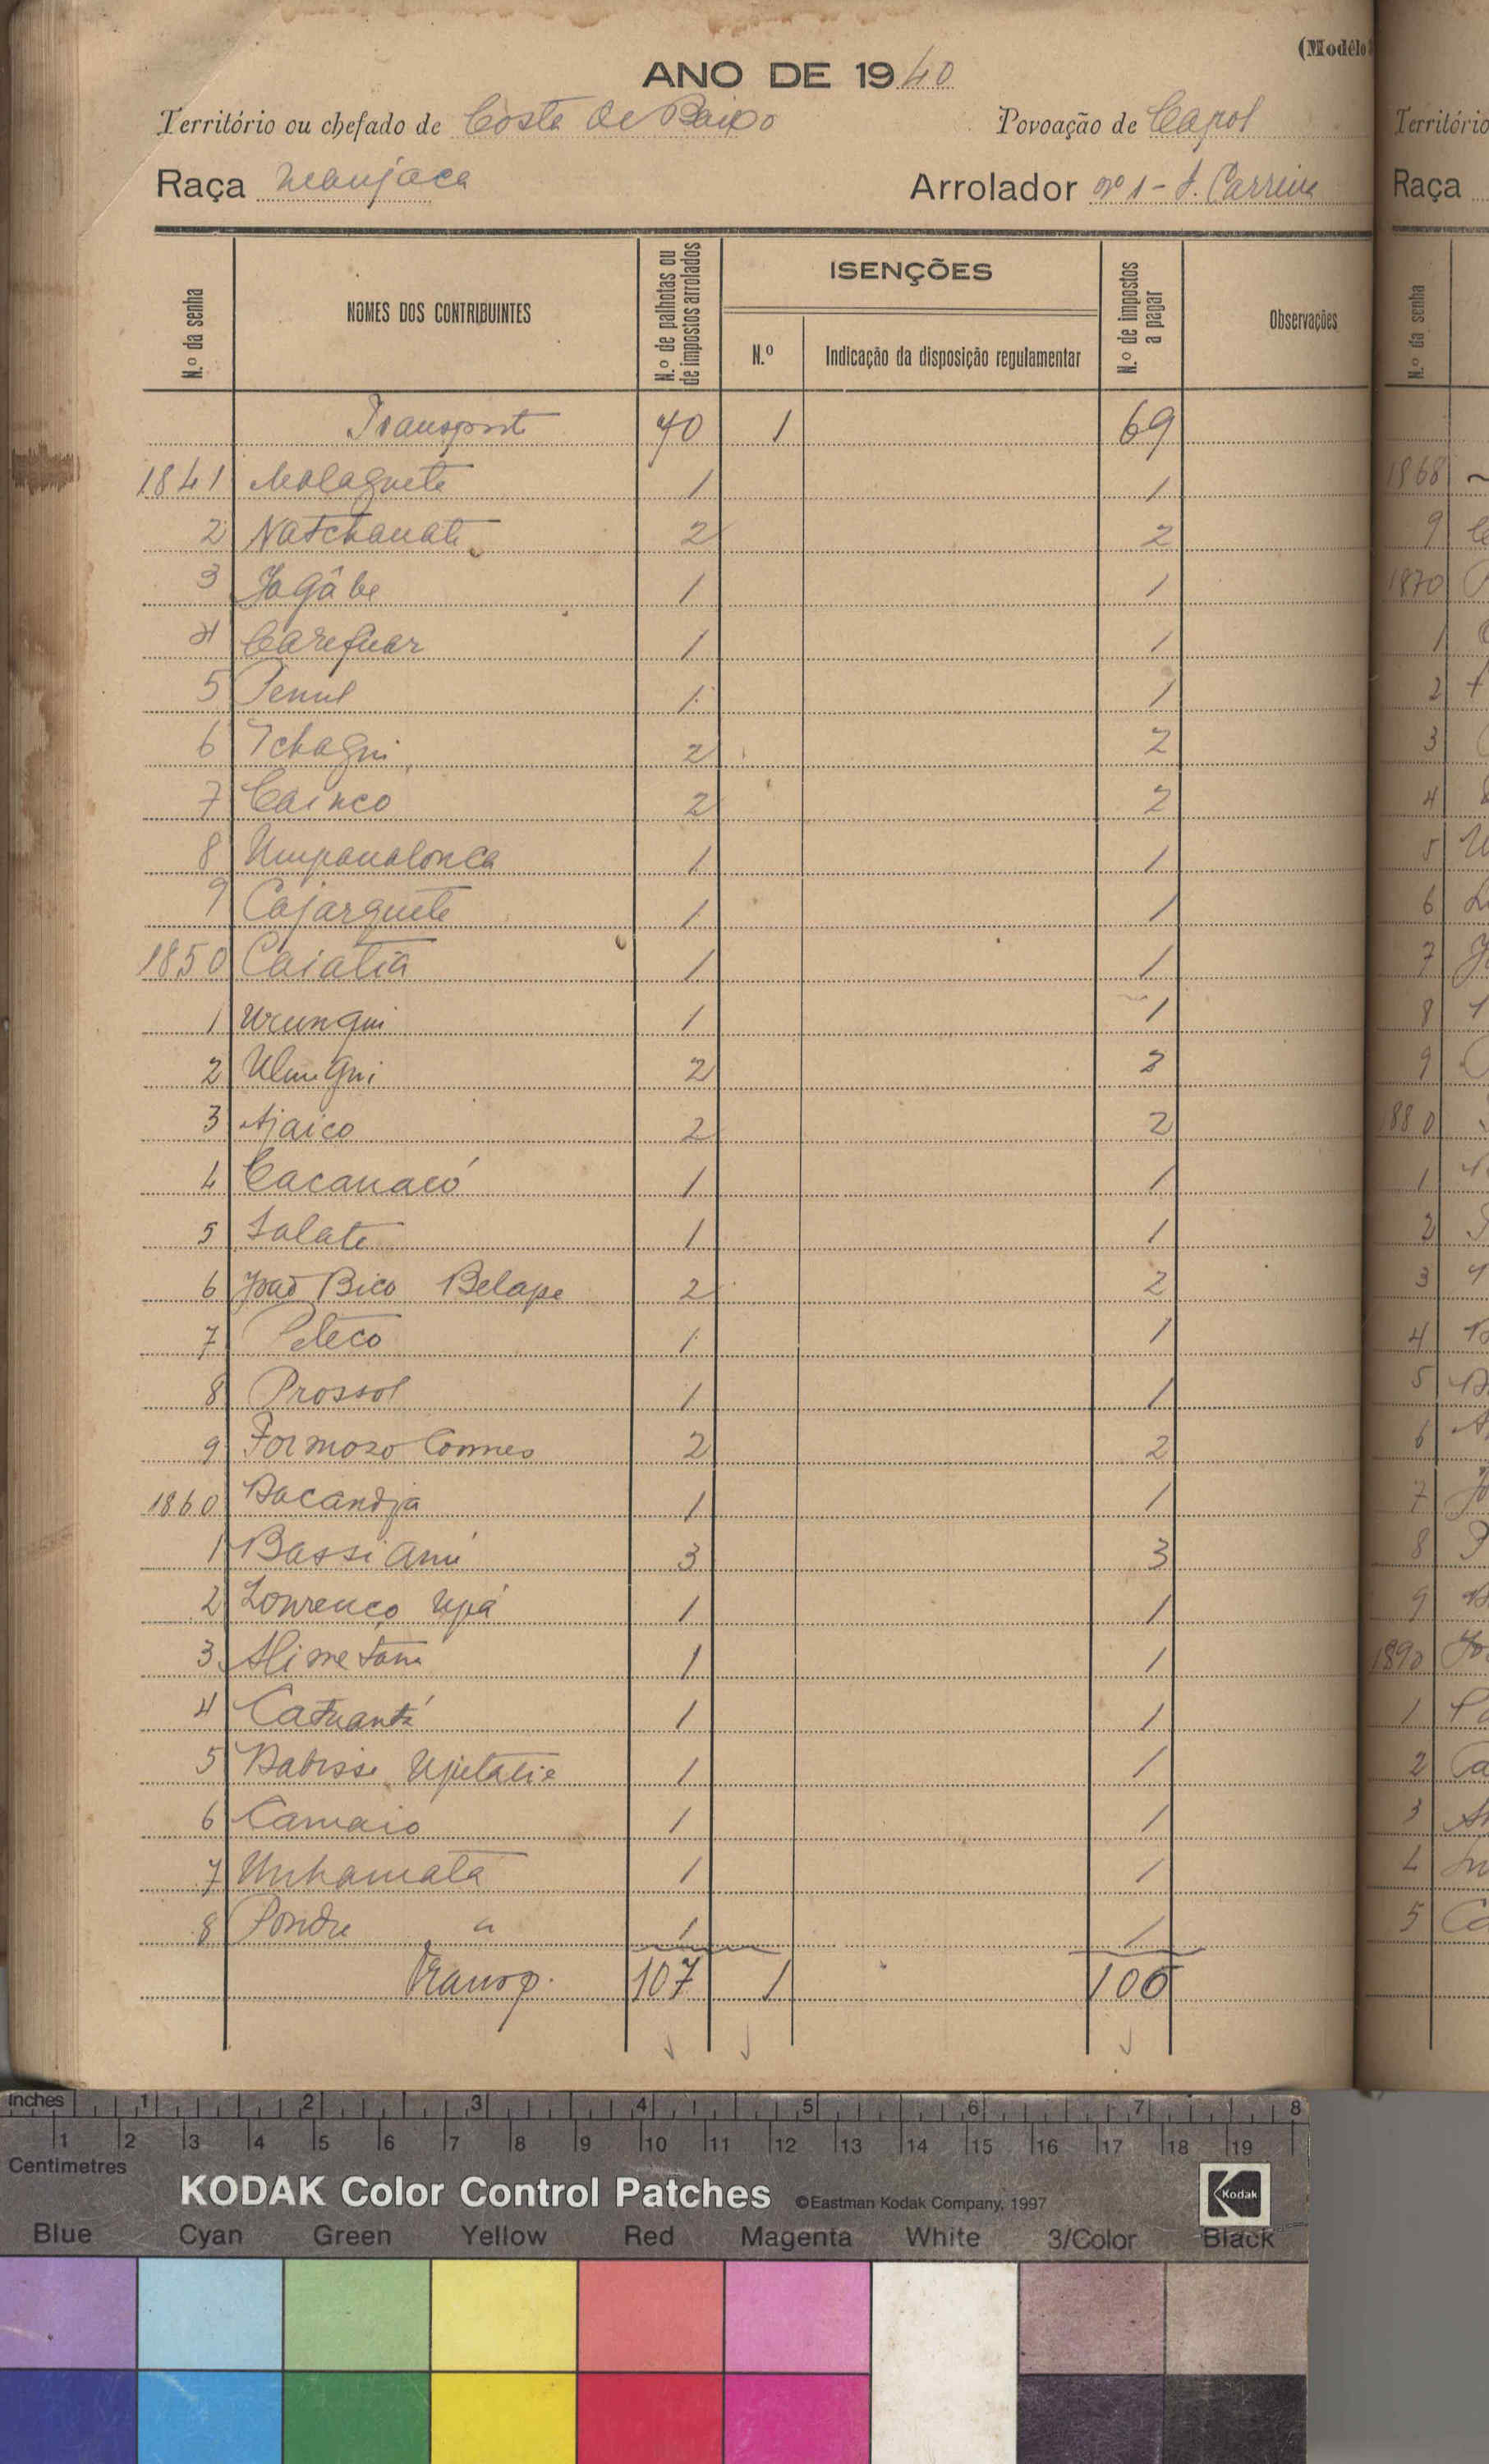 (Modêlo
ANO DE 1940
Território ou chefado de Costa de Baixo Povoação de Capol
Raça Manjaca Arrolador nº 1 - J. Carreira
N.º da senha NOMES DOS CONTRIBUINTES N.º de palhotas ou de impostos arrolados ISENÇÕES N.º Indicação da disposição regulamentar N.º de impostos a pagar Observações
Transport 70 1 69
1841 Malaguete 1 1
2 Natchanate 2 2
3 Jagâbe 1 1
4 Carefuar 1 1
5 Penul 1 1
6 Tchagui 2 2
7 Cainco 2 2
8 Umpanalonca 1 1
9 Cajarguete 1 1
1850 Caiatia 1 1
1 Urungui 1 1
2 2 2
3 Ajaico 2 2
4 Cacanacó 1 1
5 Salate 1 1
6 João Bico Belape 2 2
7 Peteco 1 1
8 Prossol 1 1
9 Formozo Gomes 2 2
1860 Bacandja 1 1
1 Bassi 3 3
2 Lourenço Upá 1 1
3 1 1
4 1 1
5 1 1
6 Camaio 1 1
7 Unhamata 1 1
8 Pondu 1 1
Transp. 107 1 106
Território
Raça
N.º da senha
1868
9
1870
1
2
3
4
5
6
7
8
9
880
1
2
3
4
5
6
7
8
9
1890
1
2
3
4
5
Inches 1 2 3 4 5 6 7 8
1 2 3 4 5 6 7 8 9 10 11 12 13 14 15 16 17 18 19
Centimetres
KODAK Color Control Patches ©Eastman Kodak Company, 1997 Kodak
Blue Cyan Green Yellow Red Magenta White 3/Color Black